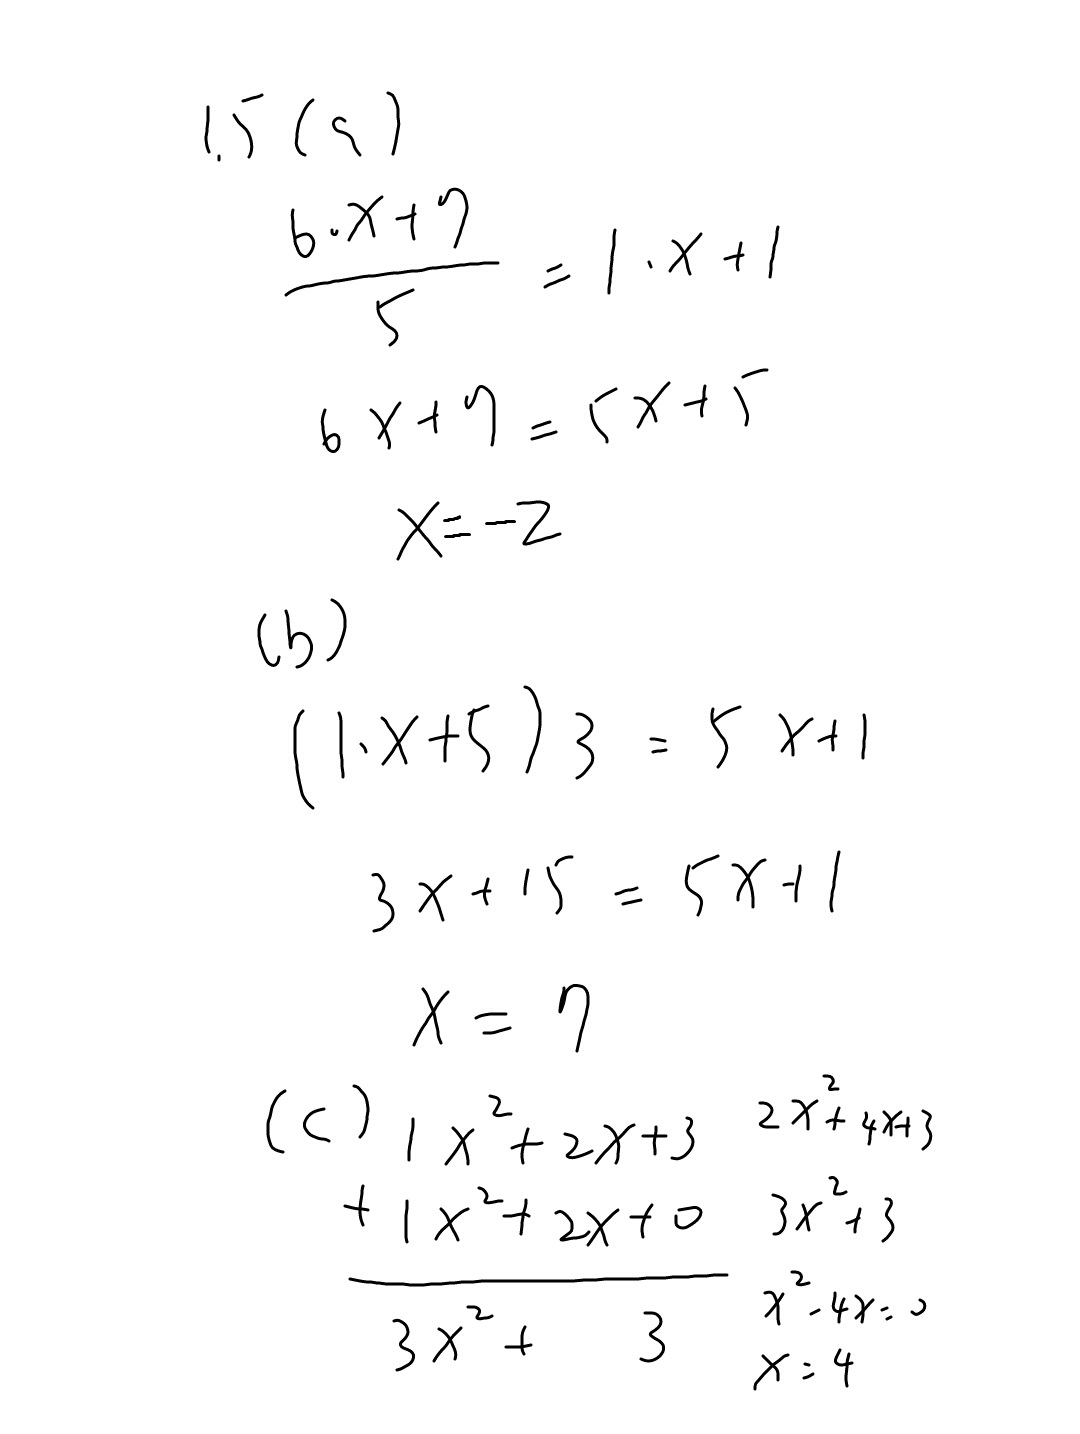 1.5 (a)
6·x+7
5
= 1·x+1
6x+7=5x+5
x=-2
(b)
(1·x+5)3 = 5x+1
3x+15 = 5x+1
x = 7
(c) 1x²+2x+3
+ 1x²+2x+0
3x²+ 3
2x²+4x+3
3x²+3
x²-4x=0
x=4